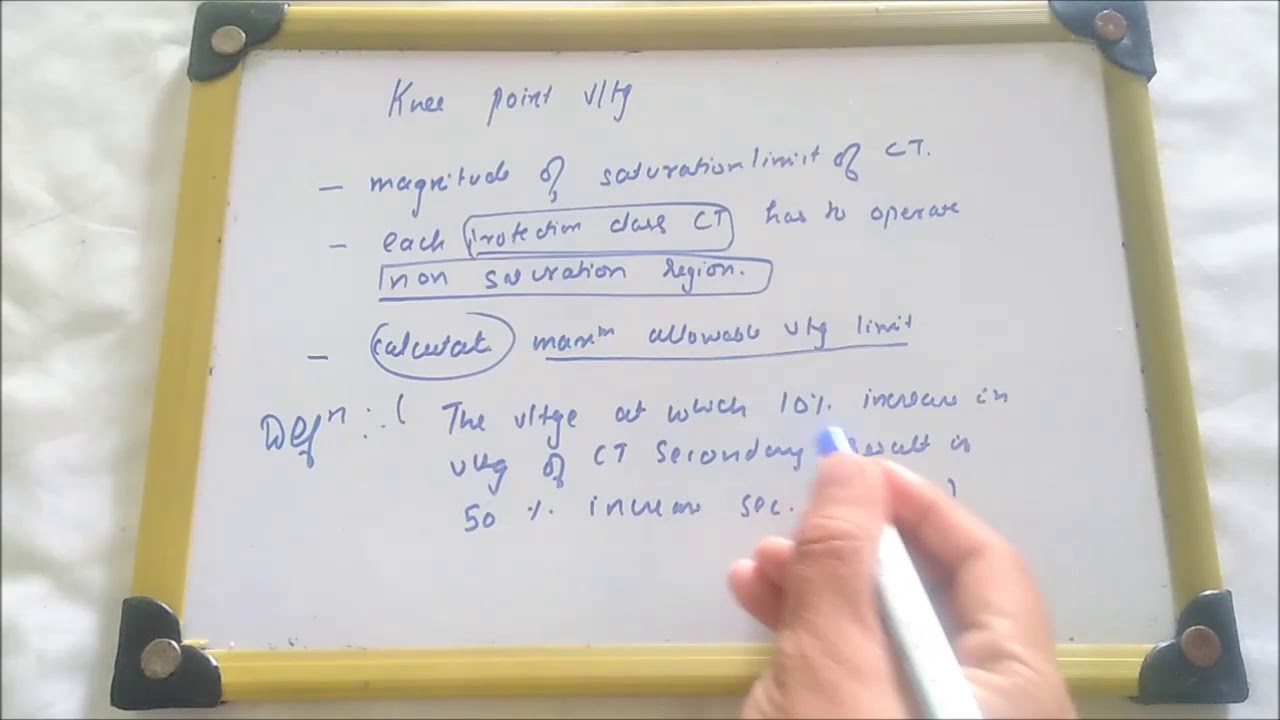 Knee point v/tg
- magnitude of saturation limit of CT.
- each protection class CT has to operate
non saturation region.
- calculate maxm allowable vtg limit
Defn :- ( The v/tge at which 10% increase in
vtg of CT secondary result in
50 % increase sec. )